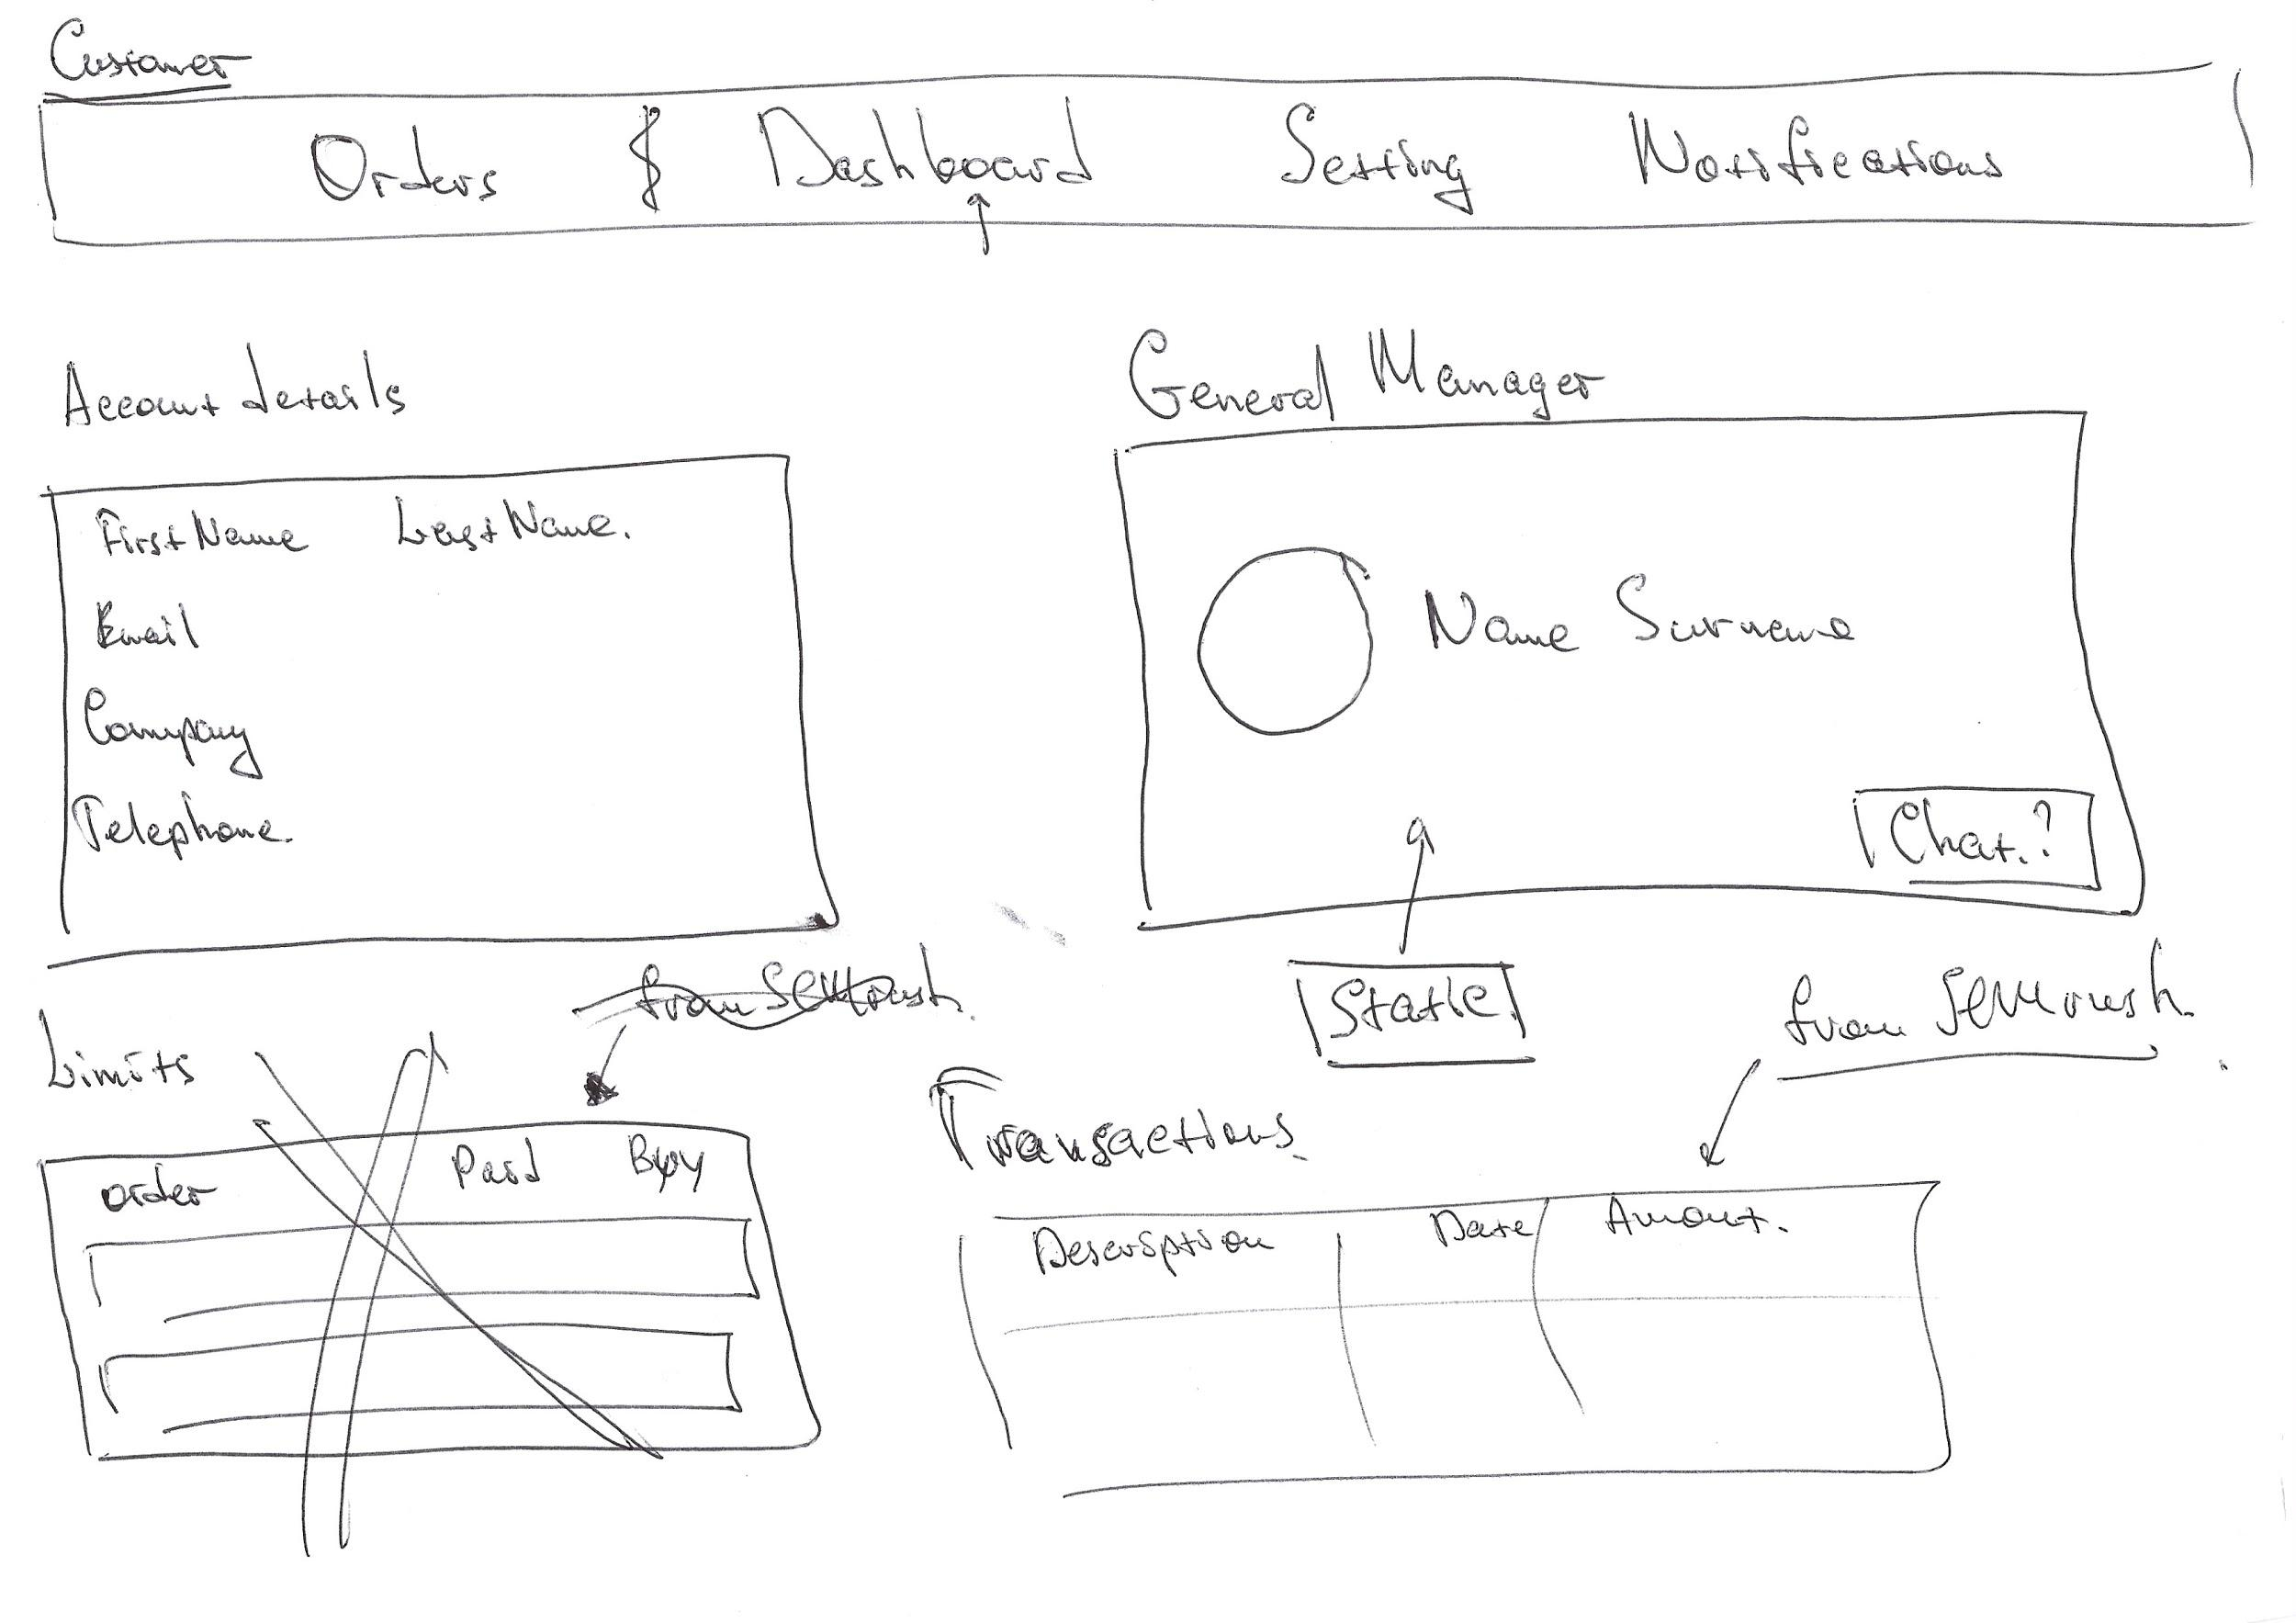 Customer
Orders Dashboard Setting Notifications
Account details
General Manager
FirstName LastName.
Email
Company
Telephone.
Name Surname
Chat.?
Static
from SEMrush.
from SEMrush.
Limits
order Paid
Transactions.
Description Date Amount.